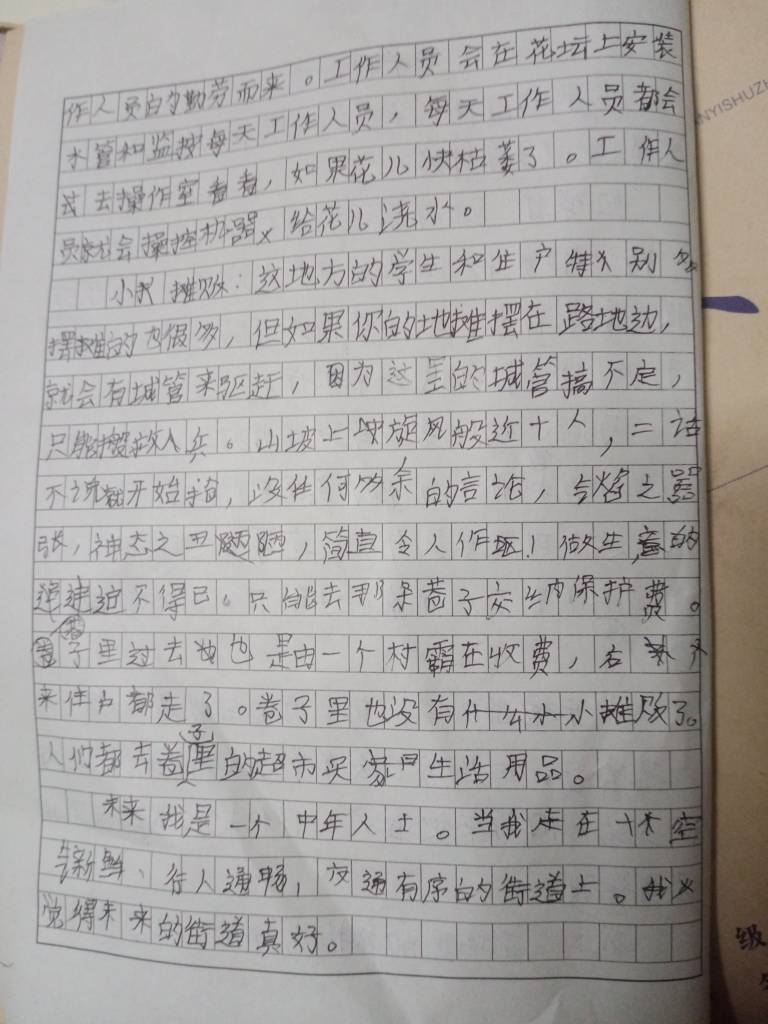 作人员的勤劳而来。工作人员会在花坛上安装
水管和监控每天工作人员，每天工作人员都会
去操作室看看，如果花儿快枯萎了。工作人
员就会操控机器 给花儿浇水。
小 摊贩：这地方的学生和住户特别多
摆摊的也很多，但如果你的地摊摆在路地边，
就会有城管来驱赶，因为这里的城管搞不定，
只能搬救兵。山坡上 旋风般近十人，二话
不说就开始抢，没任何多余的言论，气焰之嚣
张，神态之丑陋，简直令人作呕！做生意的
逼迫不得已。只能去那条巷子交纳保护费。
巷子里过去 也是由一个村霸在收费，后
来住户都走了。巷子里也没有什么小小摊贩了。
人们都去巷子里的超市买家用生活用品。
未来我是一个中年人士。当我走在 空
气新鲜、行人通畅，交通有序的街道上。我
觉得未来的街道真好。
NYISHUZH
级